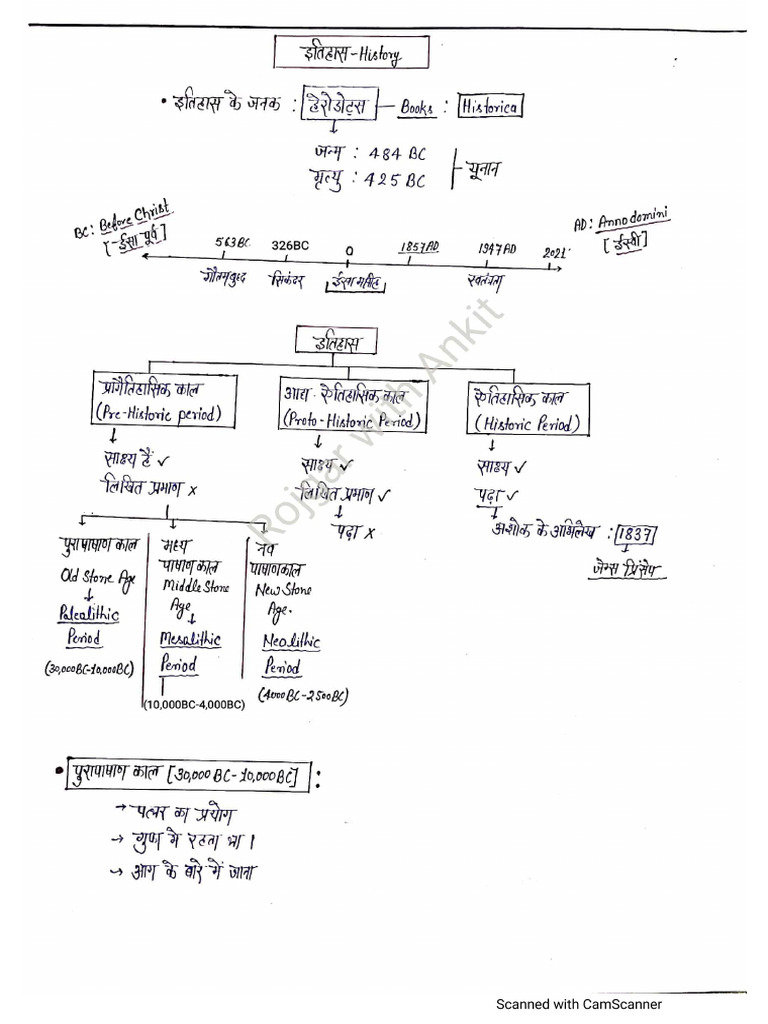 इतिहास-History
• इतिहास के जनक : हेरोडोट्स — Books : Historica
जन्म : 484 BC
मृत्यु : 425 BC
यूनान
BC: Before Christ
[-ईसा पूर्व]
AD: Anno domini
[ईस्वी]
563BC 326BC 0 1857AD 1947AD 2021
गौतमबुध्द सिकंदर ईसा मसीह स्वतंत्रता
इतिहास
प्रागैतिहासिक काल
(Pre-Historic period)
साक्ष्य हैं ✓
लिखित प्रमाण x
आद्य-ऐतिहासिक काल
(Proto-Historic Period)
साक्ष्य ✓
लिखित प्रमाण ✓
पढ़ा x
ऐतिहासिक काल
(Historic Period)
साक्ष्य ✓
पढ़ा ✓
अशोक के अभिलेख : 1837
जेम्स प्रिंसेप
पुरापाषाण काल
Old Stone Age
Paleolithic
Period
(30,000BC-10,000BC)
मध्य
पाषाण काल
Middle Stone
Age
Mesolithic
Period
(10,000BC-4,000BC)
नव
पाषाणकाल
New Stone
Age.
Neolithic
Period
(4000BC-2500BC)
• पुरापाषाण काल [30,000BC-10,000BC] :
→ पत्थर का प्रयोग
→ गुफा मे रहता था।
→ आग के बारे में जाना
Rojgar with Ankit
Scanned with CamScanner